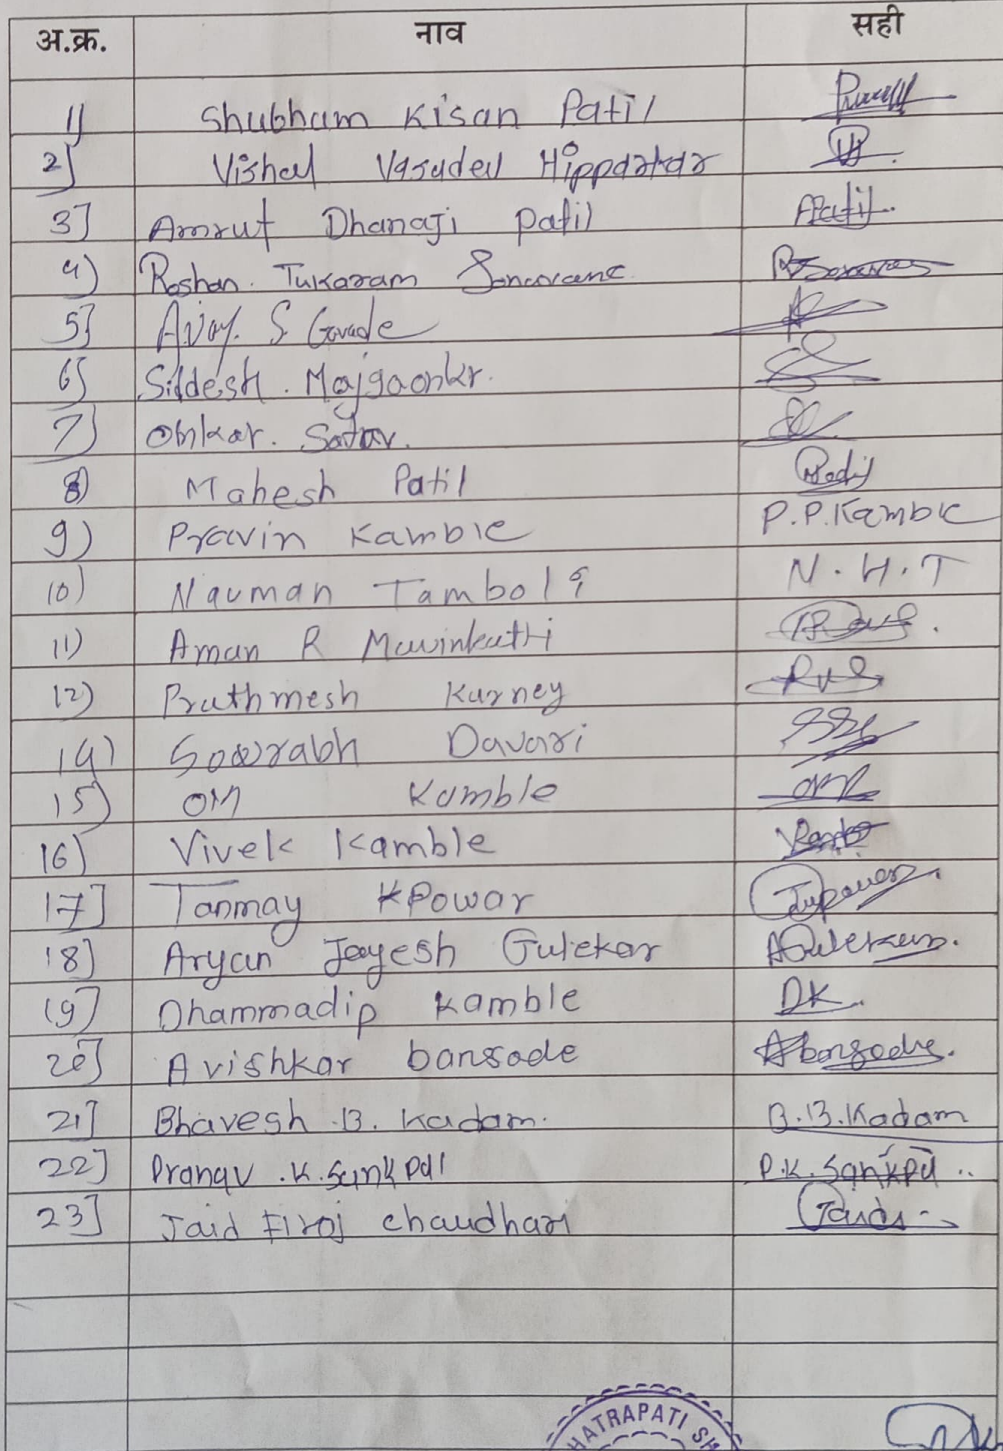 अ.क्र. नाव सही
1) Shubham Kisan Patil
2) Vishal Vasudev Hipparkar
3] Amrut Dhanaji patil APatil.
4) Roshan. Tukaram Sonavane.
5] Ajay. S. Gavade
6] Siddesh. Majgaonkr.
7) Omkar.
8) Mahesh Patil
9) Pravin Kamble P.P.Kamble
10) Nauman Tamboli N.H.T
11) Aman R
12) Prathmesh Kurney
14) Sourabh Davari
15) OM Kamble
16) Vivek Kamble
17] Tanmay K Powar
18] Aryan Jayesh Gulekar AGulekar.
19] Dhammadip Kamble DK.
20] Avishkar bansode Abansode.
21] Bhavesh .B. Kadam. B.B.Kadam
22] Pranav .K.Sankpal P.K.Sankpal ..
23] Jaid Firoj chaudhari
HATRAPATI SH